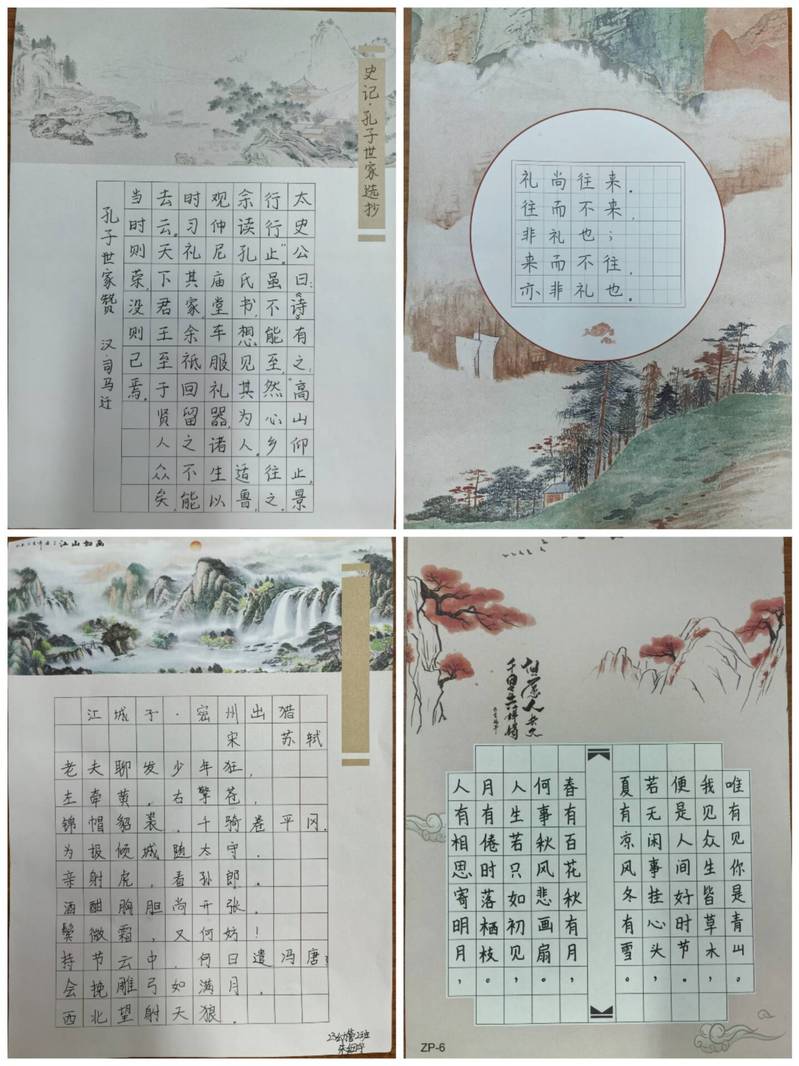 史记·孔子世家选抄
太史公曰:“《诗》有之:“高山仰止,景
行行止。”虽不能至,然心乡往之。
余读孔氏书,想见其为人。适鲁,
观仲尼庙堂车服礼器,诸生以
时习礼其家,余祗回留之不能
去云。天下君王至于贤人众矣,
当时则荣,没则已焉。
孔子世家赞 汉·司马迁
礼尚往来。
往而不来,
非礼也;
来而不往,
亦非礼也。
江山如画
江城子·密州出猎
宋 苏轼
老夫聊发少年狂,
左牵黄,右擎苍,
锦帽貂裘,千骑卷平冈。
为报倾城随太守,
亲射虎,看孙郎。
酒酣胸胆尚开张,
鬓微霜,又何妨!
持节云中,何日遣冯唐?
会挽雕弓如满月,
西北望射天狼。
但愿人长久
千里共婵娟
唯有见你是青山。
我见众生皆草木,
便是人间好时节。
若无闲事挂心头,
夏有凉风冬有雪。
春有百花秋有月,
何事秋风悲画扇。
人生若只如初见,
月有倦时落栖枝。
人有相思寄明月,
ZP-6